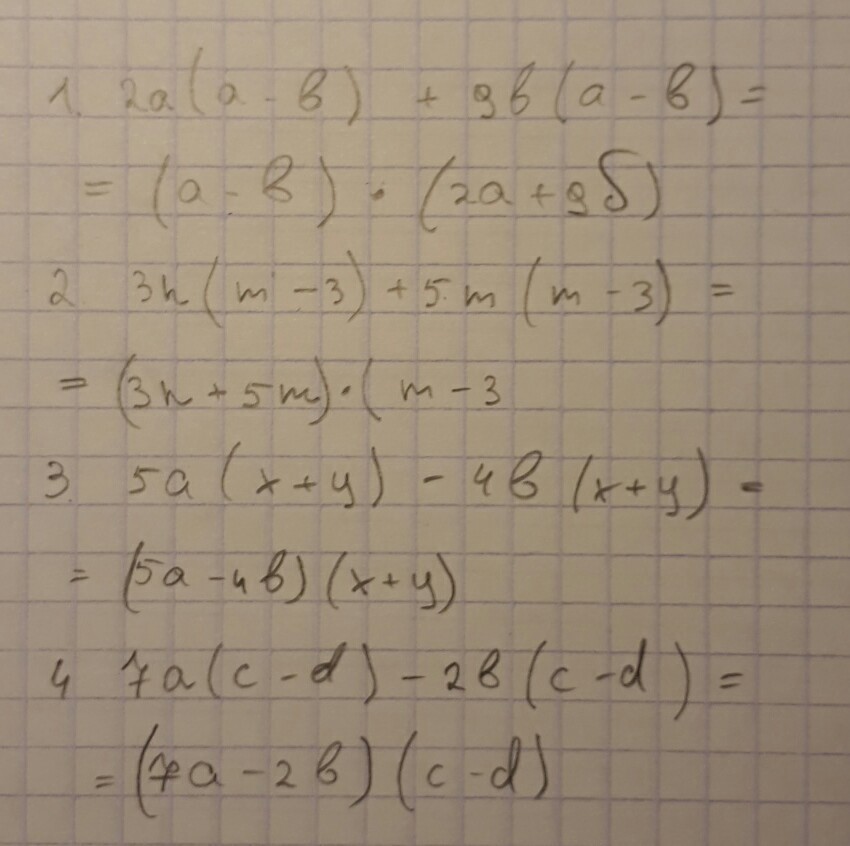 1. 2a(a - b) + 9b(a - b) =
= (a - b) · (2a + 9б)
2 3n(m - 3) + 5m(m - 3) =
= (3n + 5m) · (m - 3
3 5a(x + y) - 4b(x + y) =
= (5a - 4b)(x + y)
4 7a(c - d) - 2b(c - d) =
= (7a - 2b)(c - d)